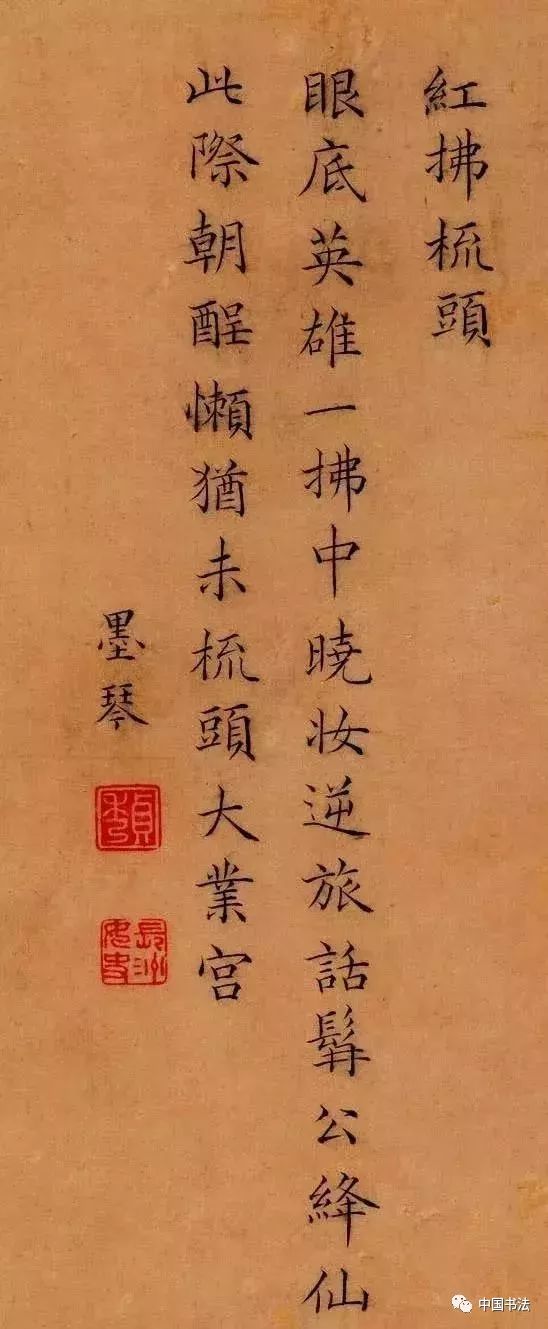 紅拂梳頭
眼底英雄一拂中曉妆逆旅話髯公絳仙
此際朝酲懶猶未梳頭大業宮
墨琴
長洲女史
中国书法